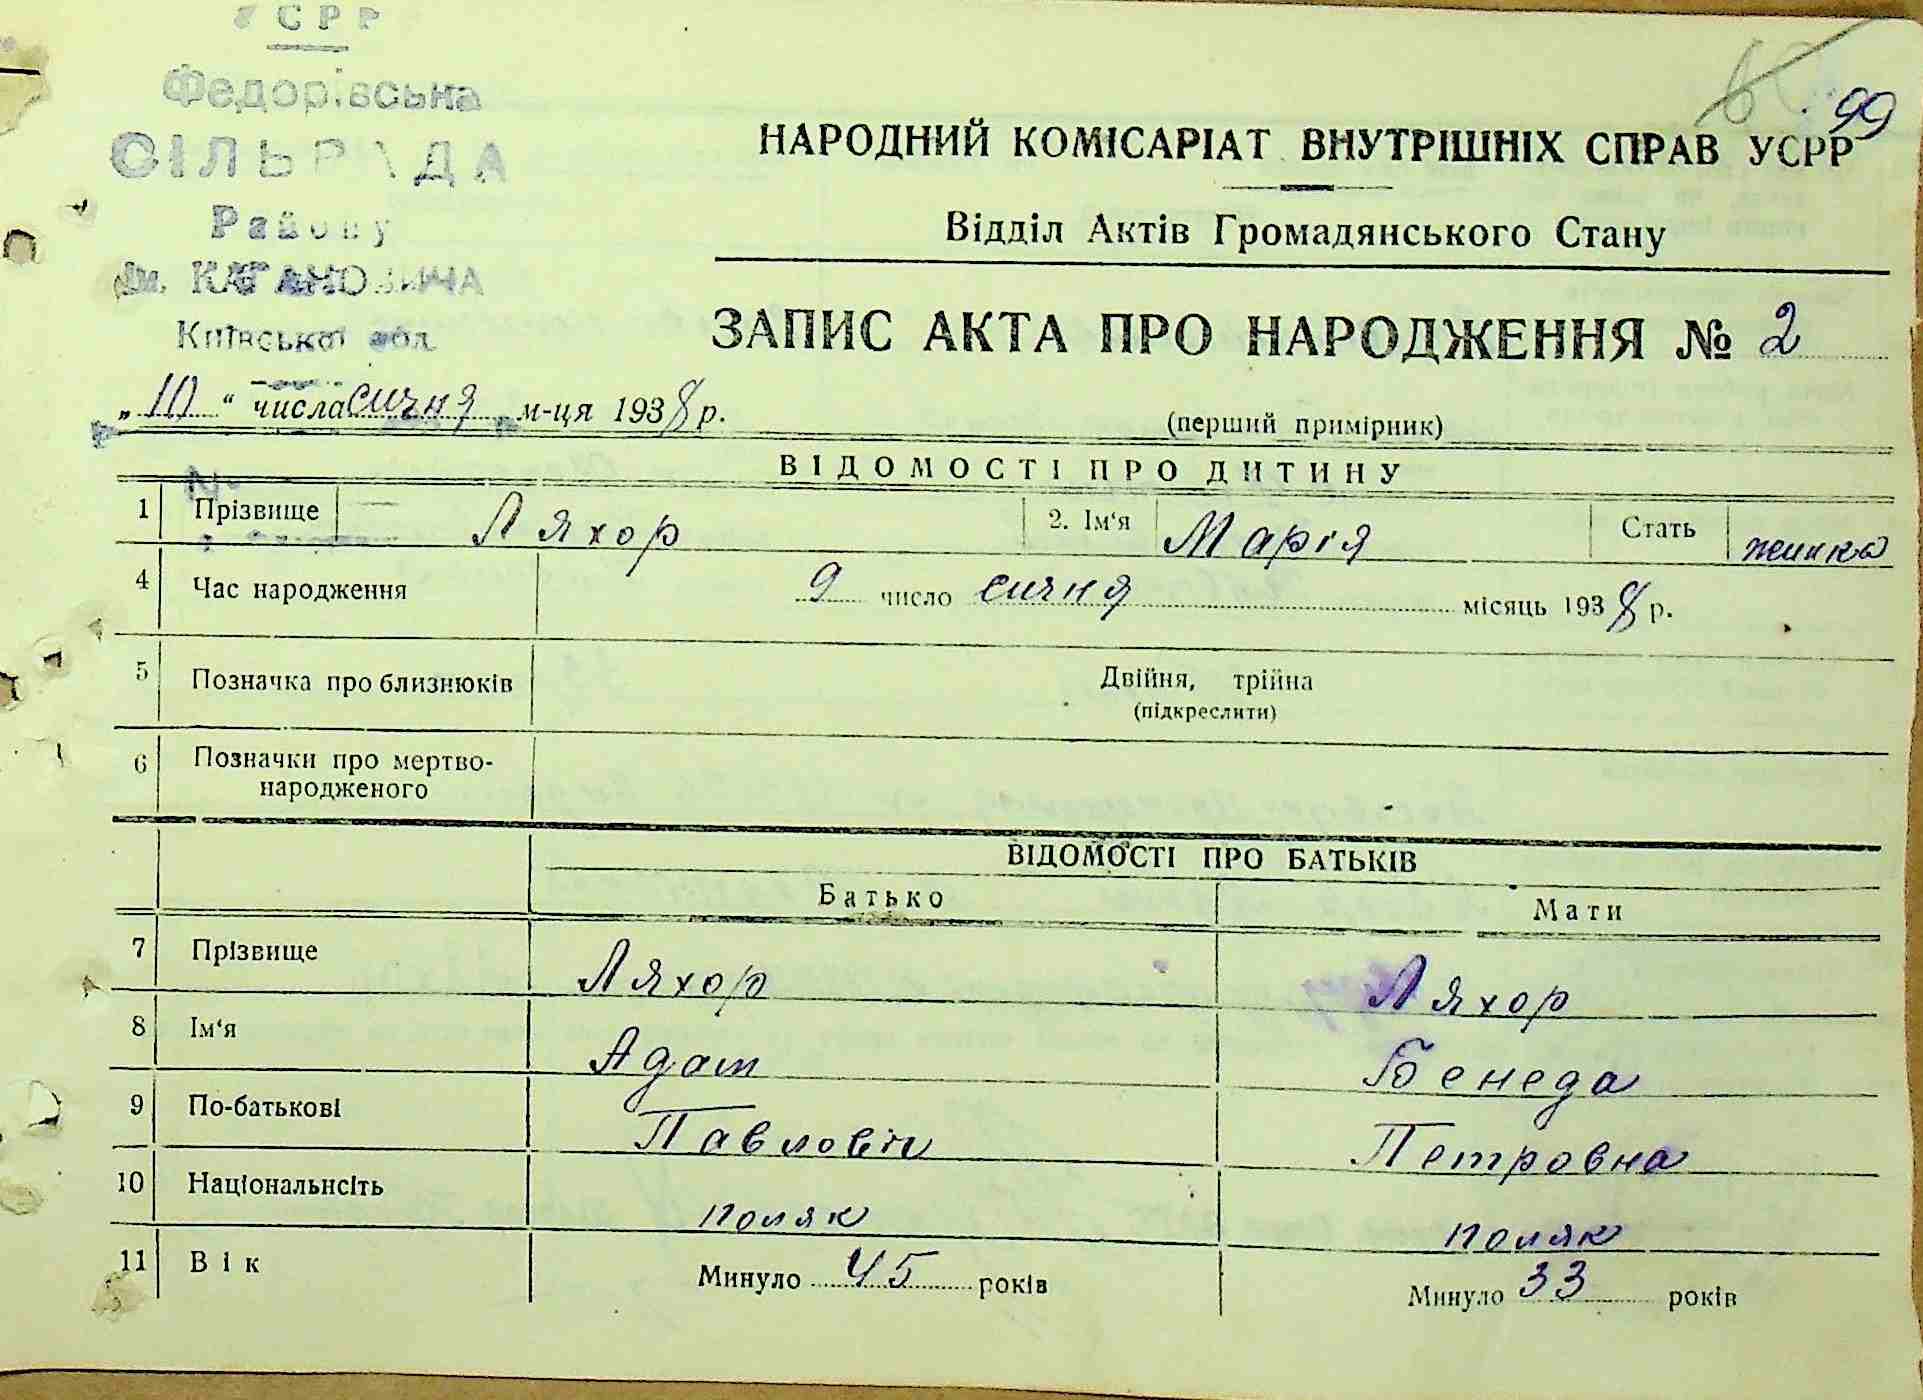 УСРР
Федорівська
СІЛЬРАДА
Району
ім. КАГАНОВИЧА
Київської обл.
99
НАРОДНИЙ КОМІСАРІАТ ВНУТРІШНІХ СПРАВ УСРР
Відділ Актів Громадянського Стану
ЗАПИС АКТА ПРО НАРОДЖЕННЯ № 2
„10“ числа сичня м-ця 1938 р.
(перший примірник)
ВІДОМОСТІ ПРО ДИТИНУ
1 Прізвище Ляхор 2. Ім‘я Марія Стать жинка
4 Час народження 9 число сичня місяць 1938 р.
5 Позначка про близнюків Двійня, трійна
(підкреслити)
6 Позначки про мертво-
народженого
ВІДОМОСТІ ПРО БАТЬКІВ
Батько Мати
7 Прізвище Ляхор Ляхор
8 Ім‘я Адам Бенеда
9 По-батькові Павловіч Петровна
10 Національнсіть поляк поляк
11 Вік Минуло 45 років Минуло 33 років